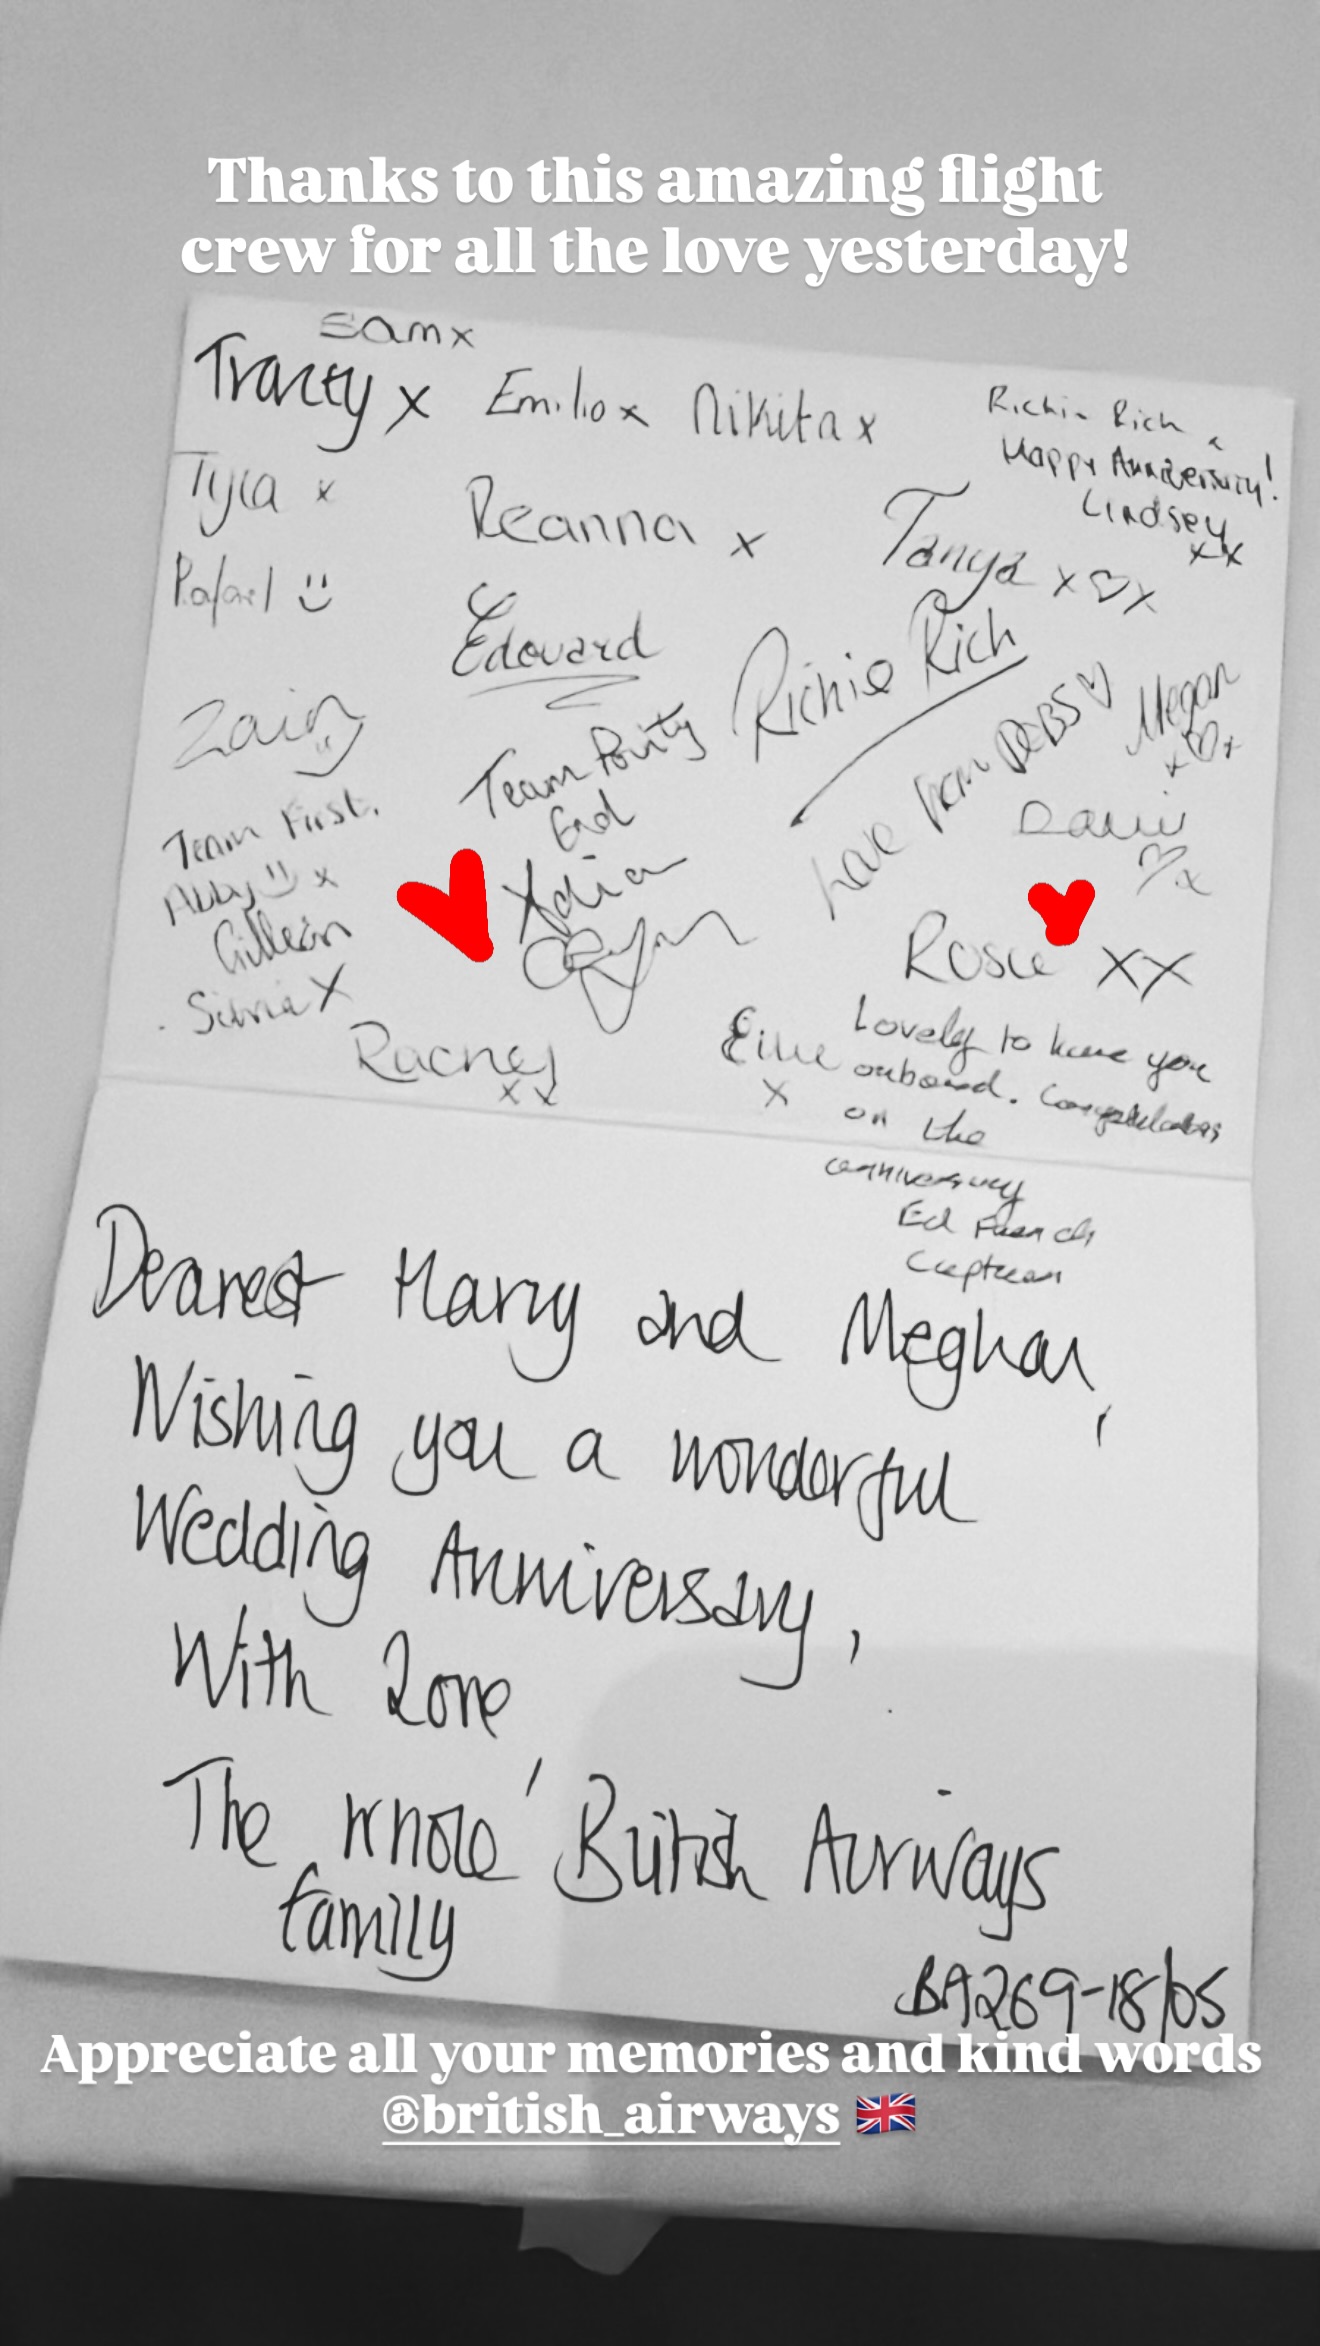 Thanks to this amazing flight
crew for all the love yesterday!
Sam x
Tracey x Emilio x Nikita x
Richie Rich x
Happy Anniversary!
Lindsey
xx
Tyla x
Reanna x
Tanya x♡x
Rafael
Edouard
Richie Rich
Love from DEBS ♡
Megan
x♡x
Zain
Team Party
End
Team First.
Abby x
Gillean
Silvia x
♡x
Rosie xx
Rachel
xx
x
Lovely to have you
onboard. Congratulations
on the
anniversary
Ed French
Captain
Dearest Harry and Meghan,
Wishing you a wonderful
Wedding Anniversary,
With Love
The whole British Airways
family
BA269-18/05
Appreciate all your memories and kind words
@british_airways 🇬🇧